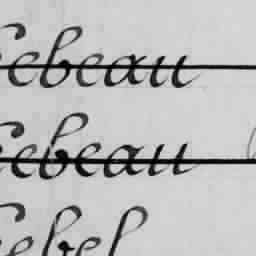 Lebeau
Lebeau
Lebel